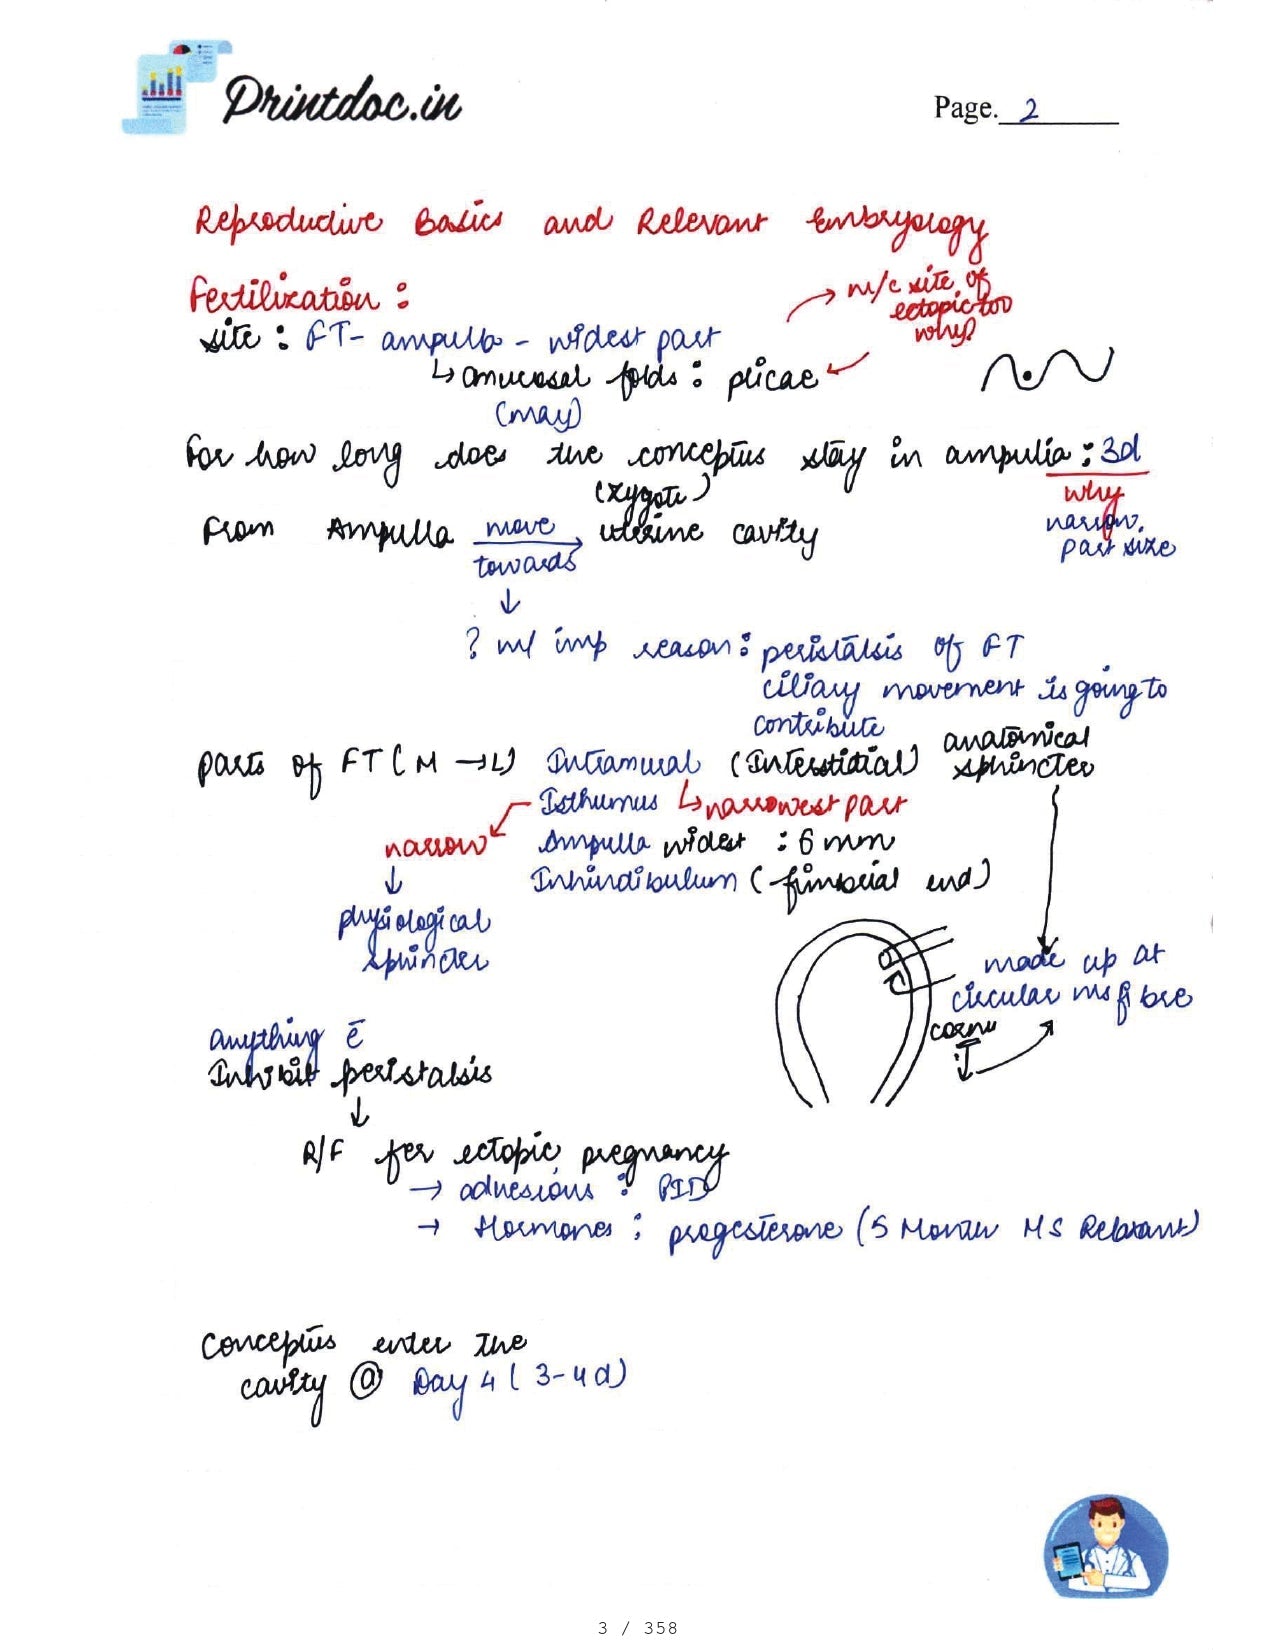 Printdoc.in
Page. 2
Reproductive Basics and Relevant Embryology
Fertilization :
→ m/c site of
ectopic too
why?
site : FT- ampulla - widest part
↳ mucosal folds : plicae
(may)
For how long does the conceptus stay in ampulla : 3d
(zygote)
why
narrow.
part size
From Ampulla move towards → uterine cavity
↓
? m/ imp reason : peristalsis of FT
ciliary movement is going to
contribute
parts of FT ( M → L) Intramural (Interstitial) anatomical
sphincter
Isthumus ↳ narrowest part
narrow
Ampulla widest : 6 mm
Inhindibulum (fimbrial end)
↓
physiological
sphincter
made up at
circular ms fibre
cornu
anything c̄
Inhibit peristalsis
↓
R/F for ectopic pregnancy
→ adhesions : PID
→ Hormones : progesterone (S Month MS Relaxant)
Conceptus enter the
cavity @ Day 4 ( 3-4d)
3 / 358